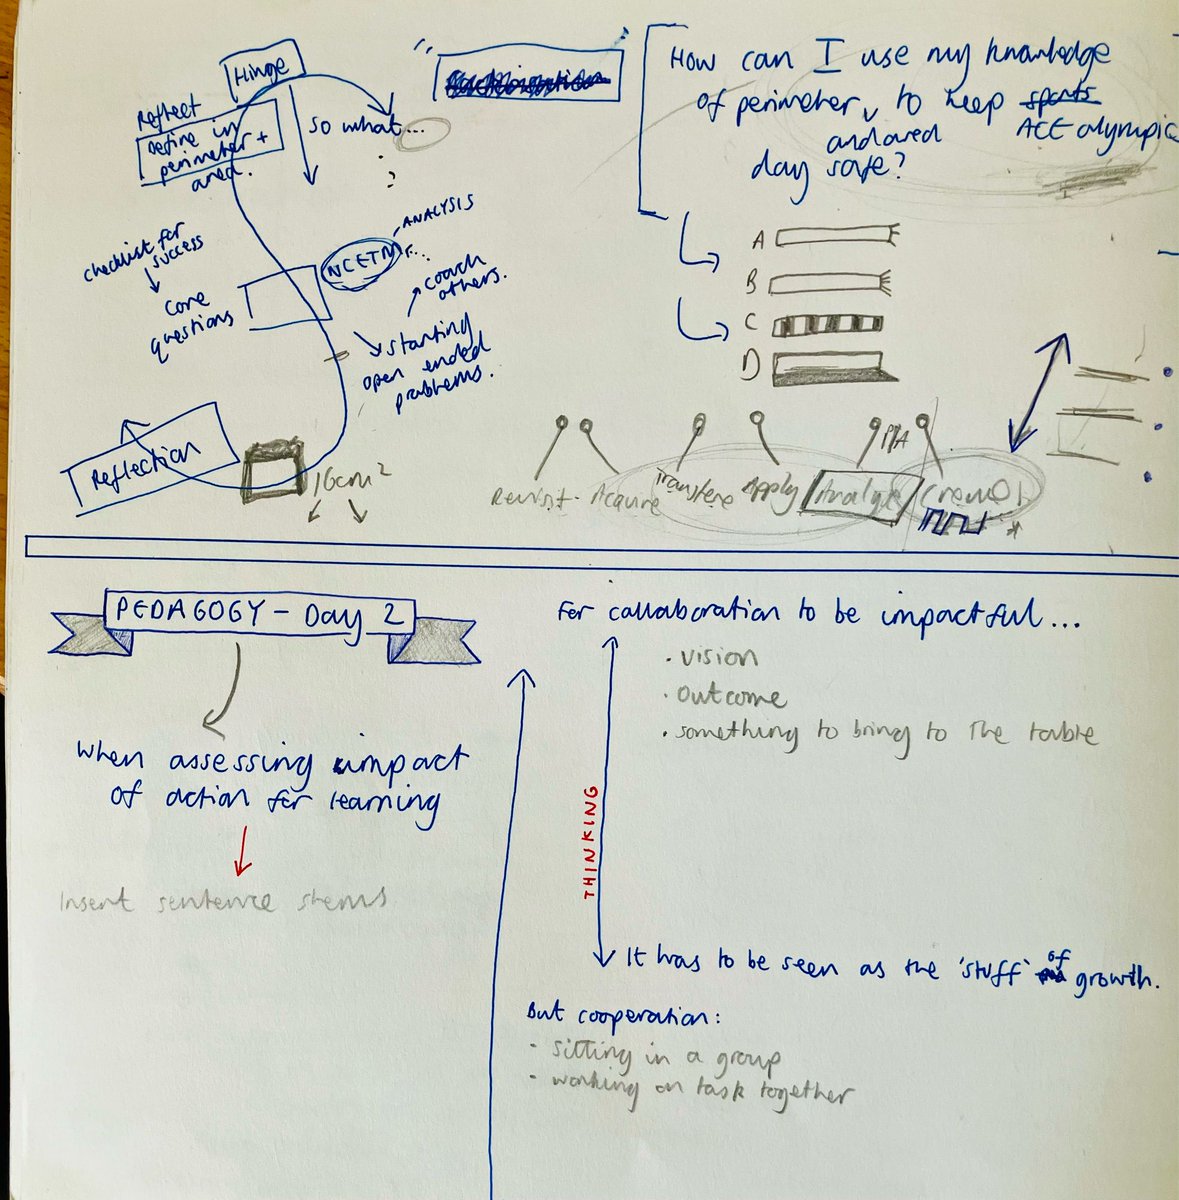 Hinge
Reflect
Define in
perimeter +
area.
so what...
?
checklist for
success
core
questions
NCETM
ANALYSIS
coach
others.
starting
open ended
problems.
Reflection
16cm²
How can I use my knowledge
of perimeter, to keep sports
and area
ACE olympic
day safe?
A
B
C
D
Revisit - Acquire Transfer Apply Analyse
PEDAGOGY - Day 2
when assessing impact
of action for learning
Insert sentence stems
For collaboration to be impactful...
. vision
. outcome
. something to bring to the table
THINKING
It has to be seen as the 'stuff' of growth.
But cooperation:
- sitting in a group
- working on task together